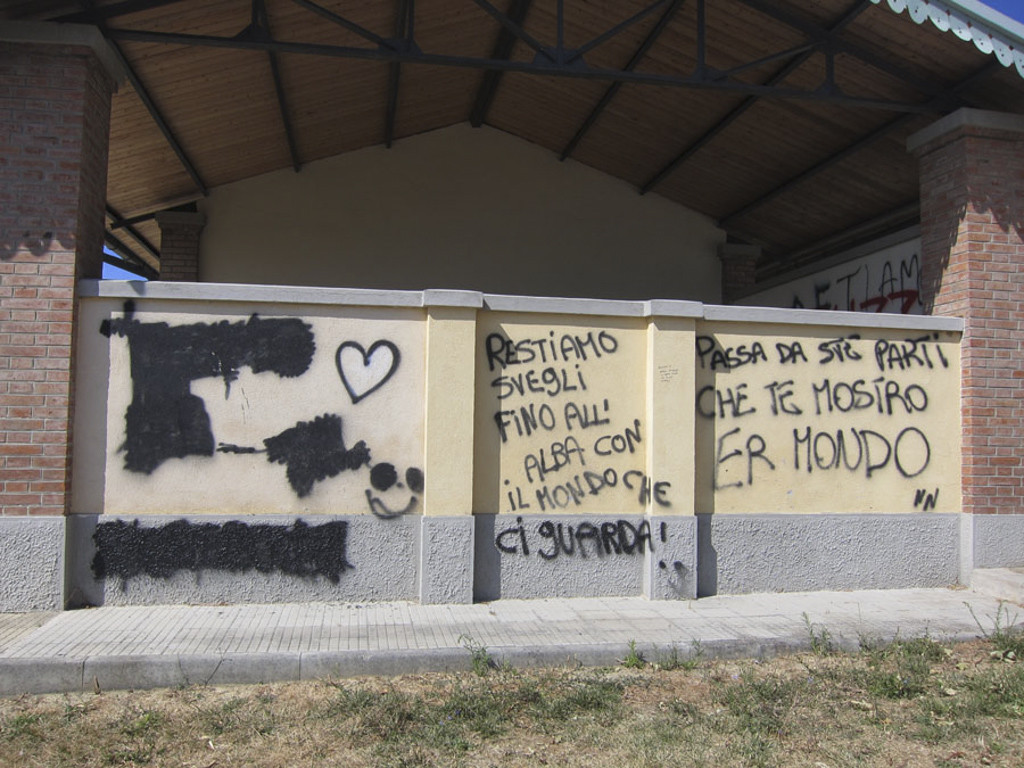 RESTIAMO
SVEGLI
FINO ALL'
ALBA CON
IL MONDO CHE
CI GUARDA!
PASSA DA STE PARTI
CHE TE MOSTRO
ER MONDO